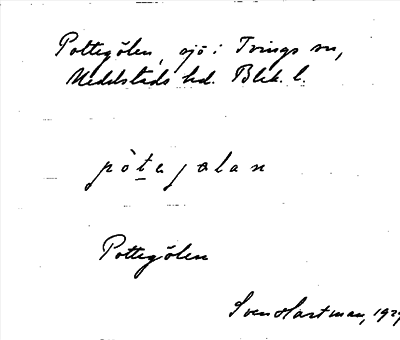 Pottegölen, sjö i Tvings sn,
Medelstads hd. Blek. l.
pòtejølan
Pottegölen
Sven Hartman, 1929